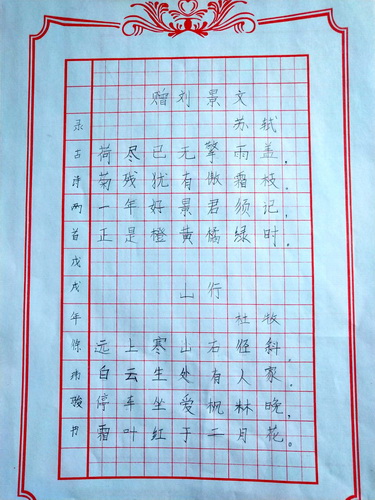 赠刘景文
苏轼
荷尽已无擎雨盖，
菊残犹有傲霜枝。
一年好景君须记，
正是橙黄橘绿时。
山行
杜牧
远上寒山石径斜。
白云生处有人家。
停车坐爱枫林晚，
霜叶红于二月花。
录古诗两首戊戌年雨骏书